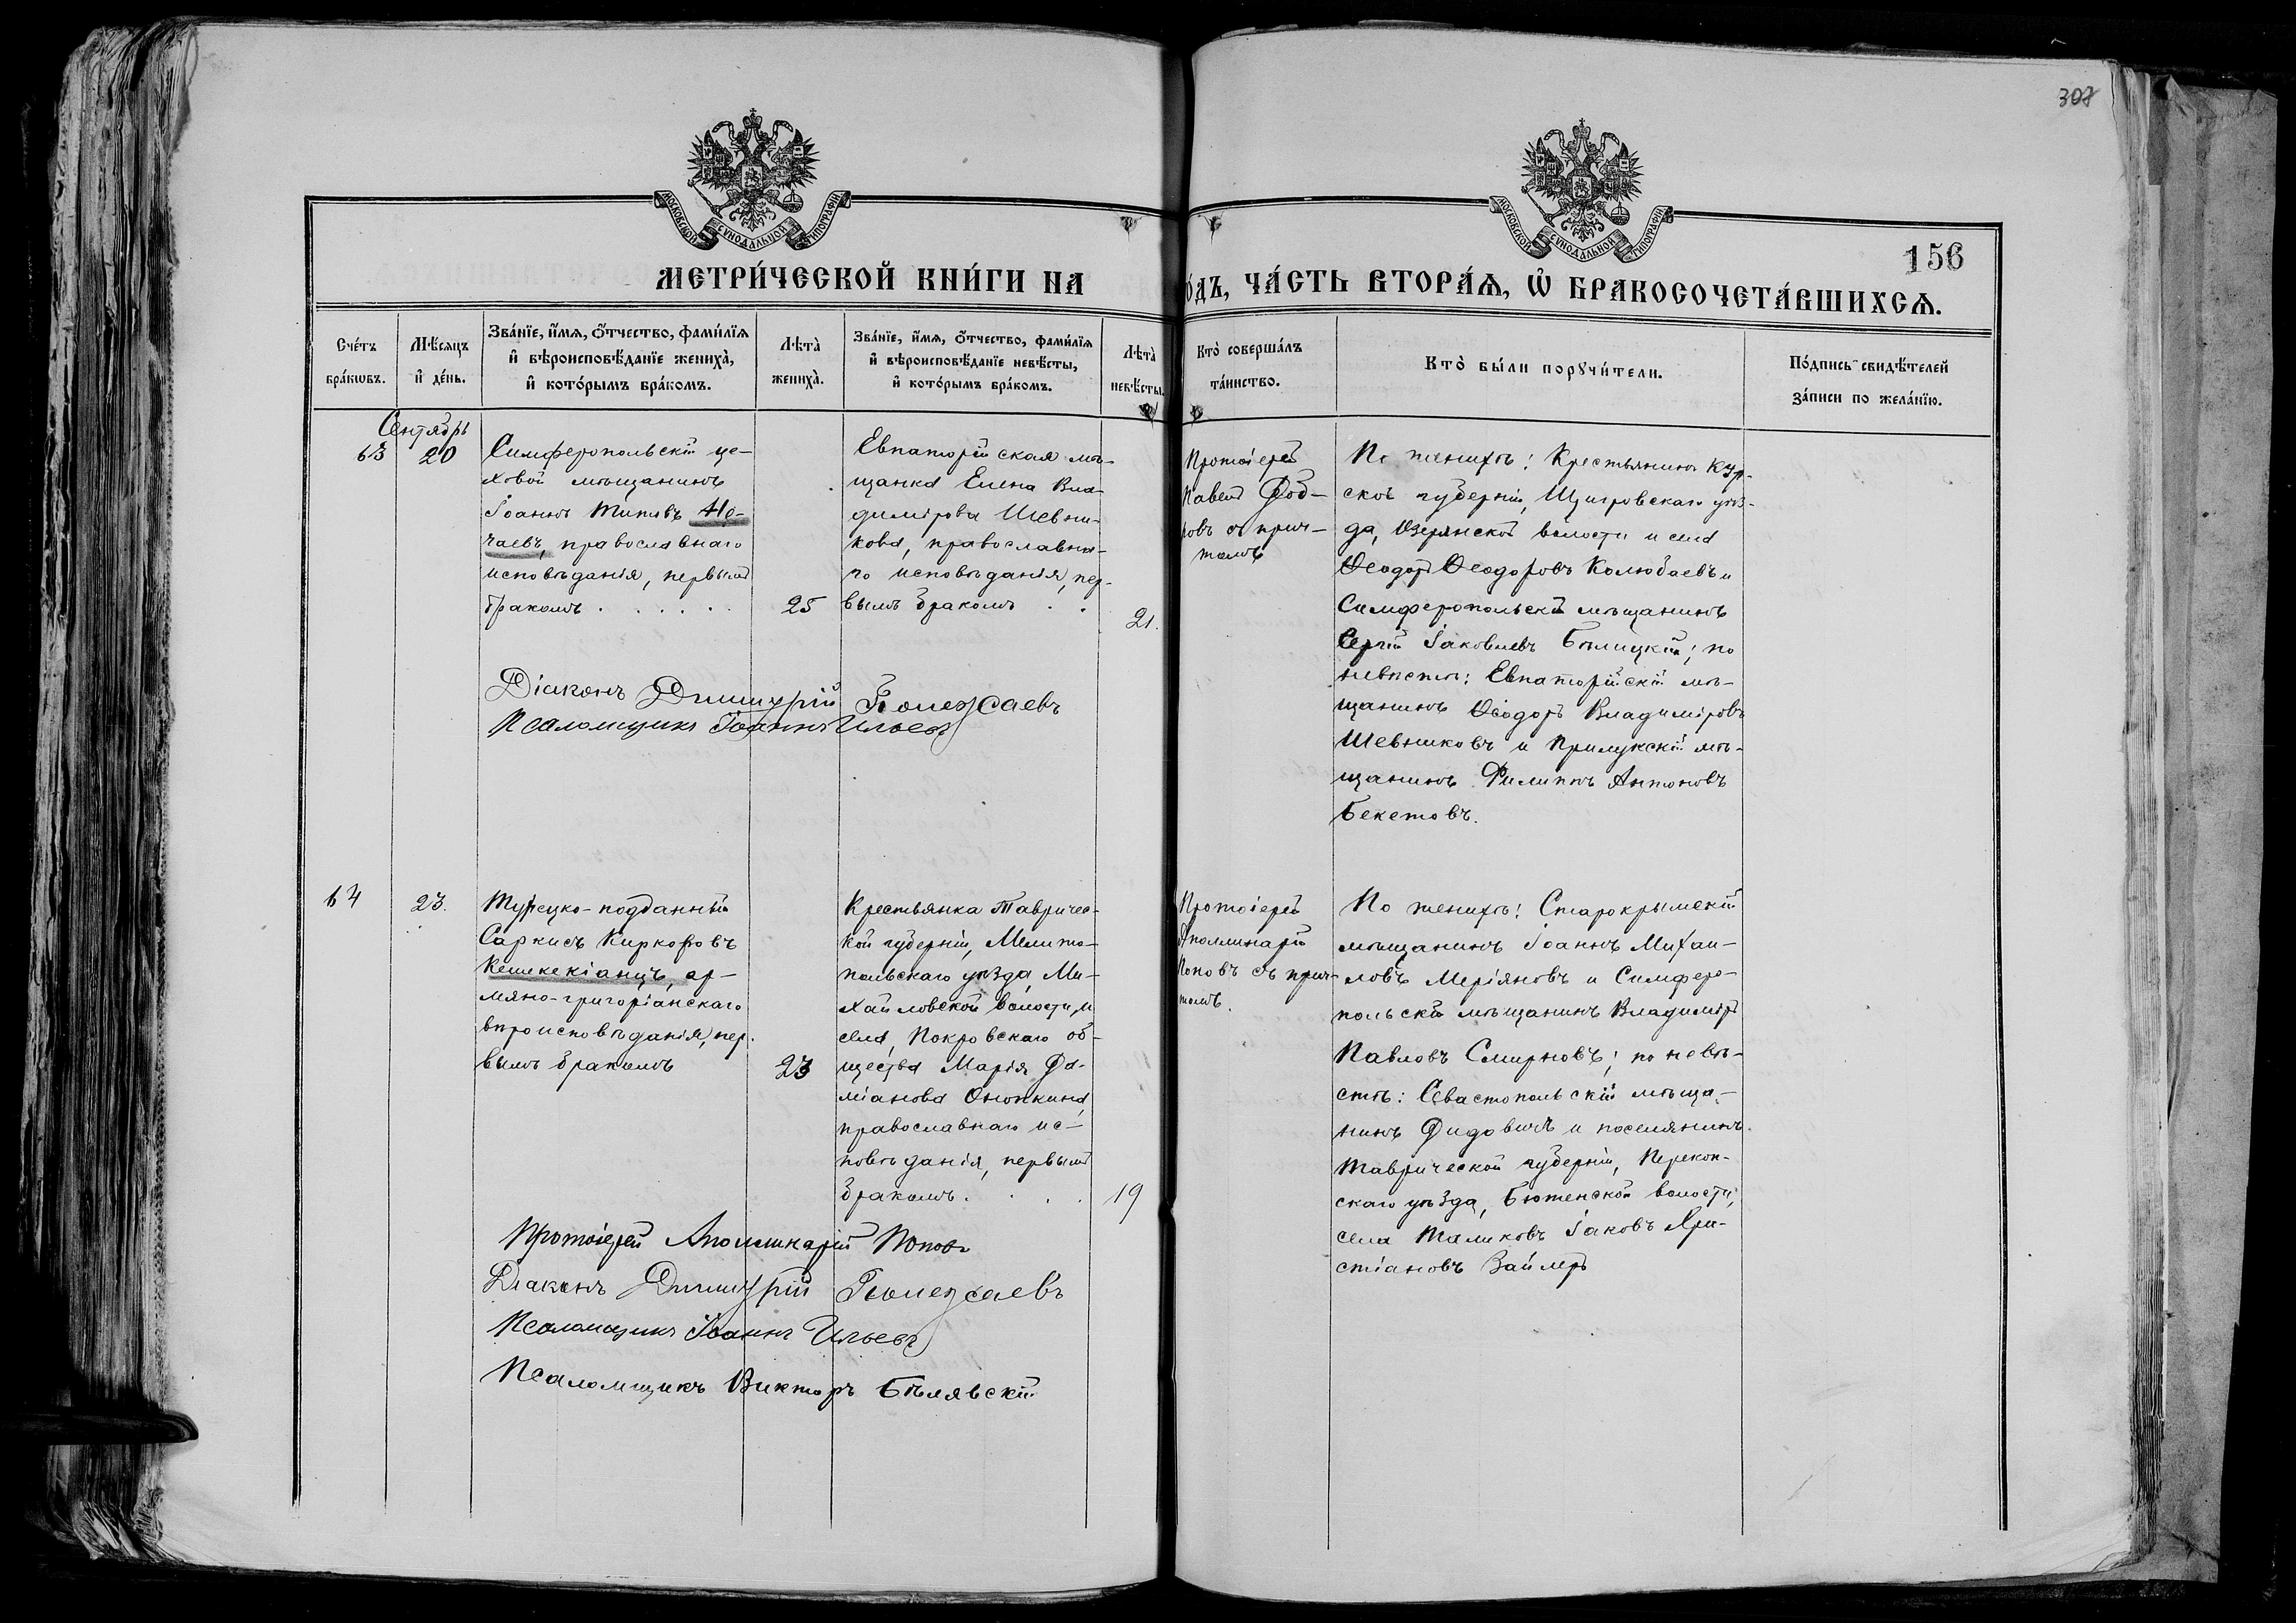 308
МОСКОВСКОЙ СѴНОДАЛЬНОЙ ТИПОГРАФІИ
МОСКОВСКОЙ СѴНОДАЛЬНОЙ ТИПОГРАФІИ
156
МЕТРИ́ЧЕСКОЙ КНИ́ГИ НА
О́ДЪ, ЧА́СТЬ ВТОРА́Ѧ, Ѡ҆ БРАКОСОЧЕТА́ВШИХСѦ.
Сче́тъ бра́кωвъ.
Мѣ́сяцъ и҆ де́нь.
Зва́нїе, и҆́мѧ, ѻ҆́тчество, фами́лїѧ и҆ вѣроисповѣ́данїе жениха̀, и҆ кото́рымъ бра́комъ.
Лѣта̀ жениха̀.
Зва́нїе, и҆́мѧ, ѻ҆́тчество, фами́лїѧ и҆ вѣроисповѣ́данїе невѣ́сты, и҆ кото́рымъ бра́комъ.
Лѣта̀ невѣ́сты.
Кто̀ соверша́лъ та́инство.
Кто̀ бы́ли порꙋчи́тели.
По́дпись свидѣ́телей за́писи по жела́нїю.
Сентябрь
63
20
Симферопольскій це-
ховой мѣщанинъ
Іоаннъ Титовъ Не-
чаевъ, православнаго
исповѣданія, первымъ
бракомъ . . . . .
25
Евпаторійская мѣ-
щанка Елена Вла-
димірова Шевни-
кова, православна-
го исповѣданія, пер-
вымъ бракомъ . .
21.
Протоіерей
Павелъ
ровъ съ прич-
томъ
По женихѣ: Крестьянинъ Кур-
ской губерніи, Щигровскаго уѣз-
да, Озерянской волости и села
Ѳеодоръ Ѳеодоровъ Колюбаевъ и
Симферопольскій мѣщанинъ
Сергій Іаковлевъ Бѣлицкій; по
невѣстѣ: Евпаторійскій мѣ-
щанинъ Ѳеодоръ Владиміровъ
Шевниковъ и Прилукскій мѣ-
щанинъ Филиппъ Антоновъ
Бекетовъ.
Діаконъ Димитрій Полежаевъ
Псаломщикъ Іоаннъ Ильевъ
64
23.
Турецко-подданный
Саркисъ Киркоровъ
Кешкекіанцъ, ар-
мяно-григоріанскаго
вѣроисповѣданія, пер-
вымъ бракомъ
23
Крестьянка Тавричес-
кой губерніи, Мелито-
польскаго уѣзда, Ми-
хайловской волости и
села, Покровскаго об-
щества Марія Да-
міанова Онопкина,
православнаго ис-
повѣданія, первымъ
бракомъ. . . .
19
Протоіерей
Аполлинарій
Поповъ съ прич-
томъ.
По женихѣ: Старокрымскій
мѣщанинъ Іоаннъ Михаи-
ловъ Меріяновъ и Симферо-
польскій мѣщанинъ Владиміръ
Павловъ Смирновъ; по невѣ-
стѣ: Севастопольскій мѣща-
нинъ Дидовичъ и поселянинъ
Таврической губерніи, Перекоп-
скаго уѣзда, Бютенской волости,
села Таликовъ Іаковъ Хри-
стіановъ Займеръ
Протоіерей Аполлинарій Поповъ
Діаконъ Димитрій Полежаевъ
Псаломщикъ Іоаннъ Ильевъ
Псаломщикъ Викторъ Бѣлявскій